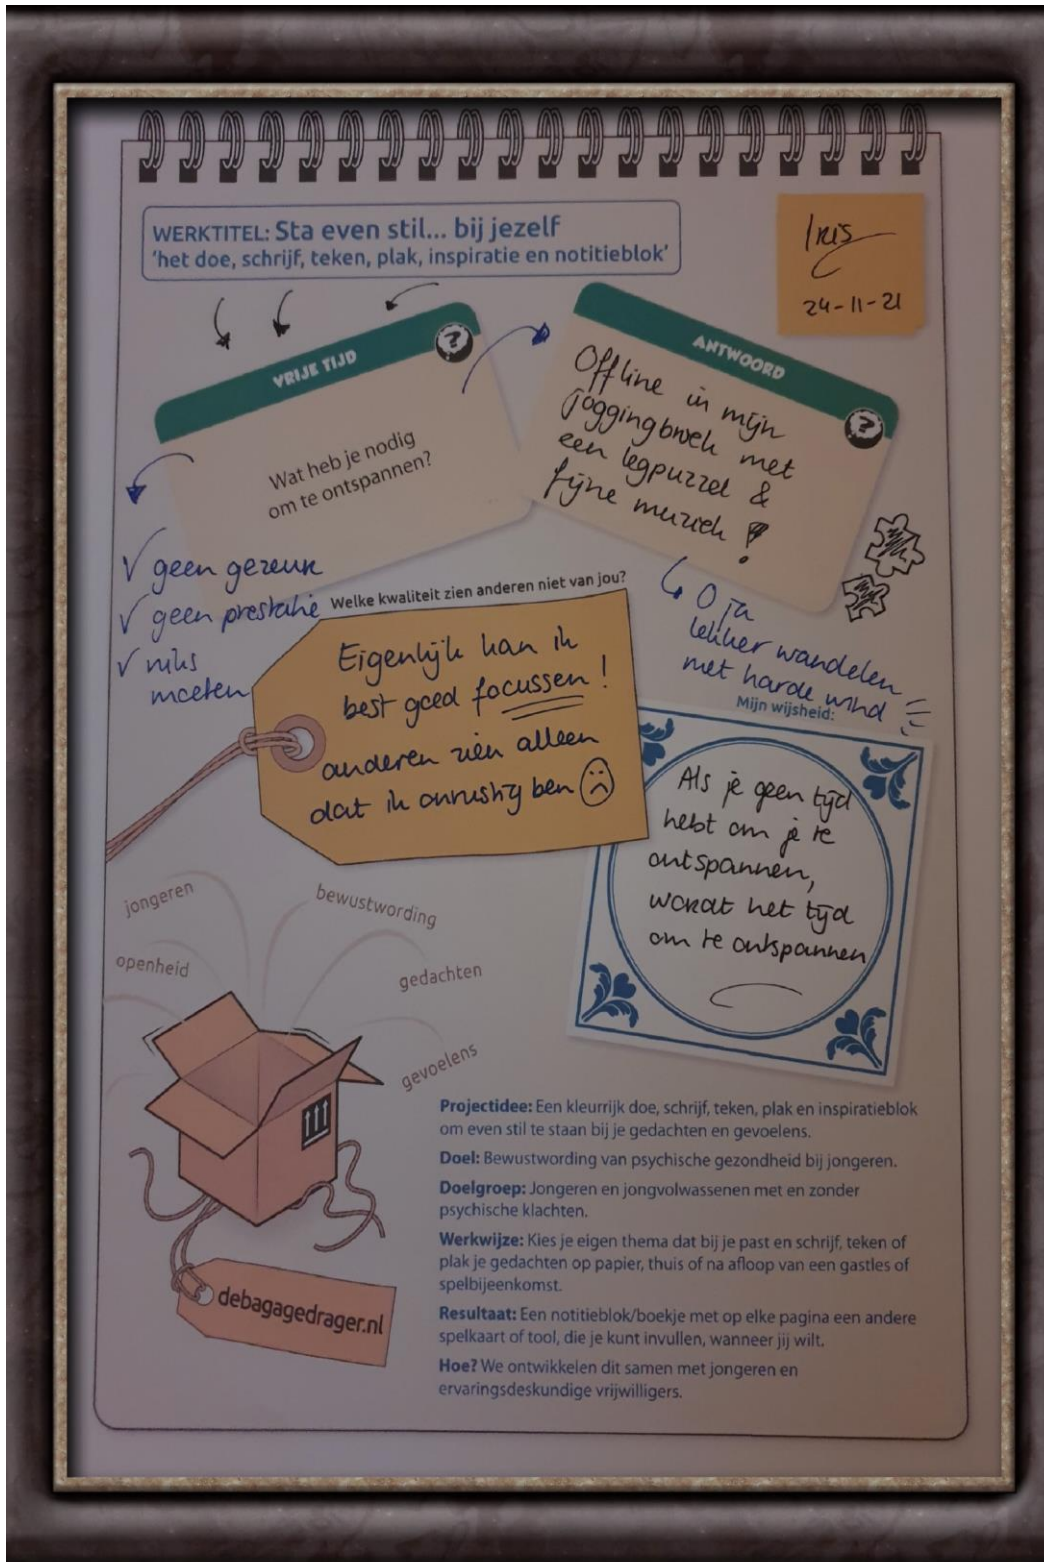 WERKTITEL: Sta even stil... bij jezelf
'het doe, schrijf, teken, plak, inspiratie en notitieblok'
Iris
24-11-21
VRIJE TIJD
?
Wat heb je nodig
om te ontspannen?
ANTWOORD
?
Offline in mijn
joggingbroek met
een legpuzzel &
fijne muziek !
√ geen gezeur
√ geen prestatie
√ niks
moeten
↳ O ja
lekker wandelen
met harde wind
Welke kwaliteit zien anderen niet van jou?
Eigenlijk kan ik
best goed focussen !
anderen zien alleen
dat ik onrustig ben ☹
Mijn wijsheid:
Als je geen tijd
hebt om je te
ontspannen,
wordt het tijd
om te ontspannen
jongeren
bewustwording
openheid
gedachten
gevoelens
debagagedrager.nl
Projectidee: Een kleurrijk doe, schrijf, teken, plak en inspiratieblok
om even stil te staan bij je gedachten en gevoelens.
Doel: Bewustwording van psychische gezondheid bij jongeren.
Doelgroep: Jongeren en jongvolwassenen met en zonder
psychische klachten.
Werkwijze: Kies je eigen thema dat bij je past en schrijf, teken of
plak je gedachten op papier, thuis of na afloop van een gastles of
spelbijeenkomst.
Resultaat: Een notitieblok/boekje met op elke pagina een andere
spelkaart of tool, die je kunt invullen, wanneer jij wilt.
Hoe? We ontwikkelen dit samen met jongeren en
ervaringsdeskundige vrijwilligers.